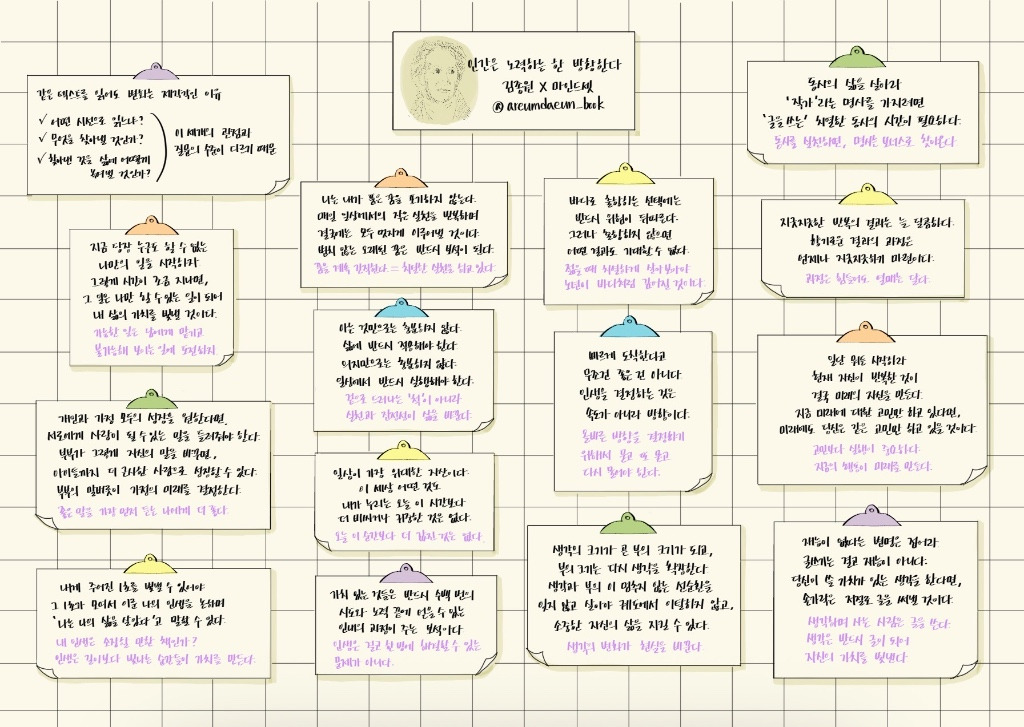 인간은 노력하는 한 방황한다
김종원 X 마인드셋
@areumdaeun_book
같은 텍스트를 읽어도 변화는 제각각인 이유
✓ 어떤 시선으로 읽느냐?
✓ 무엇을 찾아낼 것인가?
✓ 찾아낸 것을 삶에 어떻게
보여낼 것인가?
이 세개의 관점과
질문의 수준이 다르기 때문
지금 당장 누구도 할 수 없는
나만의 일을 시작하자
그렇게 시간이 조금 지나면,
그 일은 나만 할 수 있는 일이 되어
내 삶의 가치를 빛낼 것이다.
가능한 일은 남에게 맡기고
불가능해 보이는 일에 도전하자
개인과 가정 모두의 성장을 원한다면,
서로에게 사랑이 될 수 있는 말을 들려주어야 한다.
부부가 그렇게 자신의 말을 바꾸면,
아이들까지 더 근사한 사람으로 성장할 수 있다.
부부의 말버릇이 가정의 미래를 결정한다.
좋은 말을 가장 먼저 듣는 나에게 더 좋다.
나에게 주어진 1초를 빛낼 수 있어야
그 1초가 모여서 이룬 나의 인생을 논하며
'나는 나의 삶을 살았다'고 말할 수 있다.
내 인생은 소장할 만한 책인가?
인생은 길이보다 빛나는 순간들이 가치를 만든다.
나는 내가 품은 꿈을 포기하지 않는다.
매일 일상에서의 작은 실천을 반복하며
결국에는 모두 멋지게 이루어낼 것이다.
변치 않는 오래된 꿈은 반드시 보석이 된다.
꿈을 계속 간직한다 = 치열한 실천을 하고 있다.
아는 것만으로는 충분하지 않다.
삶에 반드시 적용해야 한다.
의지만으로는 충분하지 않다.
일상에서 반드시 실행해야 한다.
겉으로 드러나는 '척'이 아니라
실천과 진정성이 삶을 바꾼다.
일상이 가장 위대한 자산이다.
이 세상 어떤 것도
내가 누리는 오늘 이 시간보다
더 비싸거나 귀중한 것은 없다.
오늘 이 순간보다 더 값진 것은 없다.
가치 있는 것들은 반드시 수백 번의
시도와 노력 끝에 얻을 수 있는
인내의 과정이 주는 보석이다.
인생은 결코 한 번에 해결할 수 있는
문제가 아니다.
바다로 출항하는 선택에는
반드시 위험이 뒤따른다.
그러나 출항하지 않으면
어떤 결과도 기대할 수 없다.
젊을 때 치열하게 살아보아야
노년이 바다처럼 깊어질 것이다.
빠르게 도착한다고
무조건 좋은 건 아니다
인생을 결정하는 것은
속도가 아니라 방향이다.
올바른 방향을 결정하기
위해서 묻고 또 묻고
다시 물어야 한다.
생각의 크기가 곧 부의 크기가 되고,
부의 크기는 다시 생각을 확장한다
생각과 부의 이 멈추지 않는 선순환을
잊지 않고 살아야 궤도에서 이탈하지 않고,
소중한 자신의 삶을 지킬 수 있다.
생각의 변화가 현실을 바꾼다
동사의 삶을 살아라
'작가'라는 명사를 가지려면
'글을 쓰는' 치열한 동사의 시간이 필요하다.
동사를 실천하면, 명사는 보너스로 찾아온다
지긋지긋한 반복의 결과는 늘 달콤하다.
향기로운 결과의 과정은
언제나 지긋지긋하기 마련이다.
과정은 힘들어도 열매는 달다.
일단 뭐든 시작하라
현재 자신이 반복한 것이
결국 미래의 자신을 만든다.
지금 미래에 대한 고민만 하고 있다면,
미래에도 당신은 같은 고민만 하고 있을 것이다.
고민보다 실행이 중요하다.
지금의 행동이 미래를 만든다.
재능이 없다는 변명은 접어라
글쓰기는 결코 재능이 아니다.
당신이 쓸 가치가 있는 생각을 한다면,
손가락은 저절로 글을 써낼 것이다.
생각하며 사는 사람은 글을 쓴다.
생각은 반드시 글이 되어
자신의 가치를 빛낸다